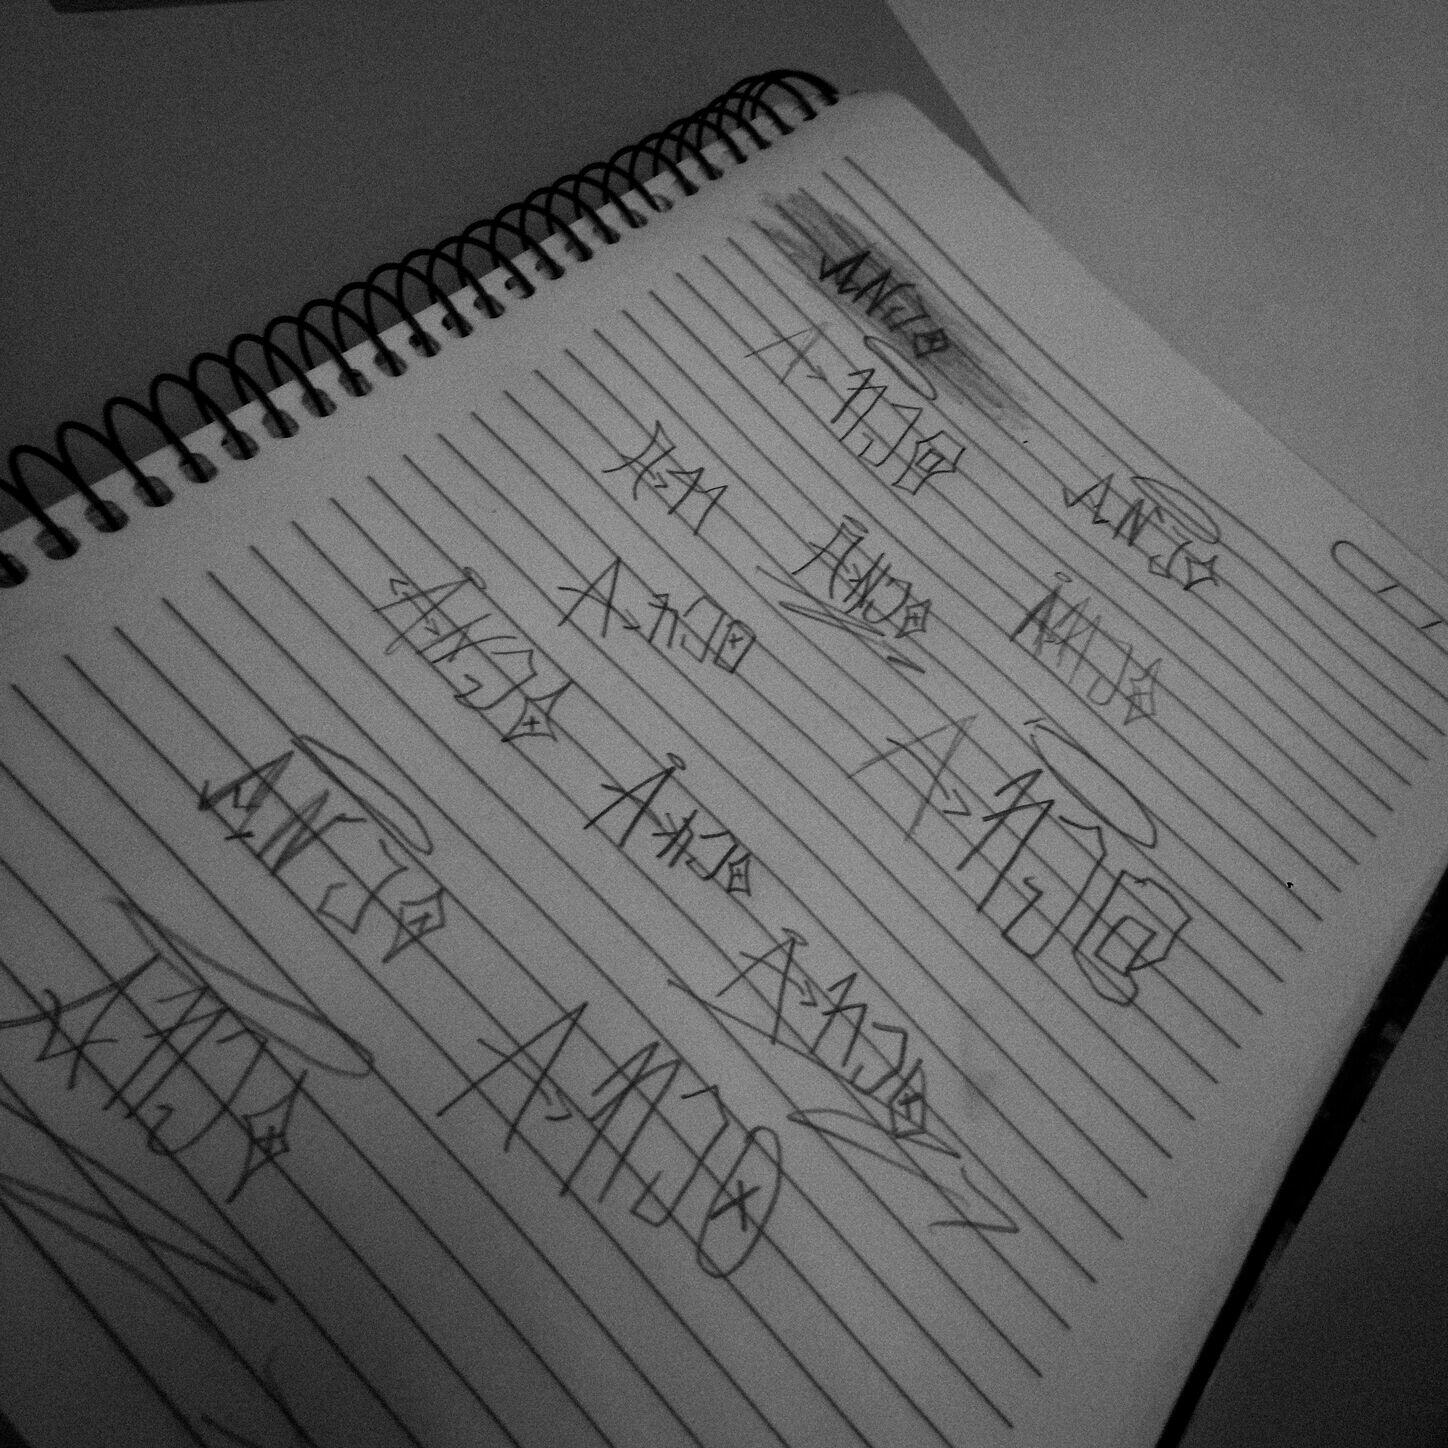 ANJO
ANJO
ANJO
AM
ANJO
ANJO
ANJO
ANJO
ANJO
ANJO
ANJO
ANJO
ANJO
ANJO
ANJO